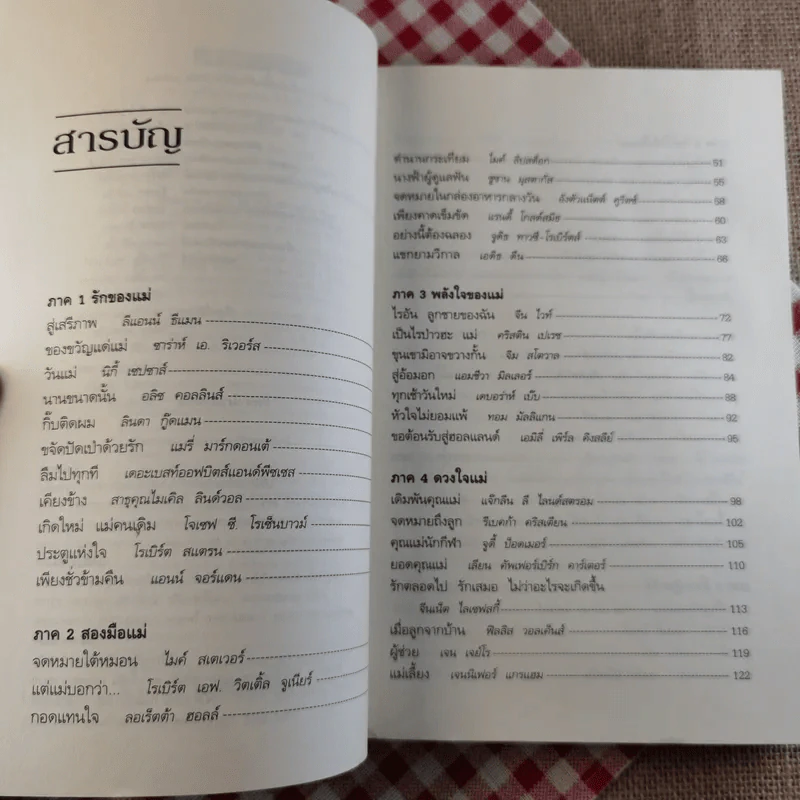 สารบัญ
ภาค 1 รักของแม่
สู่เสรีภาพ ลีแอนน์ ธีแมน
ของขวัญแด่แม่ ซาร่าห์ เอ. ริเวอร์ส
วันแม่ นิกี้ เซปซาส์
นานขนาดนั้น อลิซ คอลลินส์
กิ๊บติดผม ลินดา กู๊ดแมน
ขจัดปัดเป่าด้วยรัก แมรี่ มาร์กดอนเต้
ลืมไปทุกที เดอะเบสท์ออฟบิตส์แอนด์พีซเซส
เคียงข้าง สาธุคุณไมเคิล ลินด์วอล
เกิดใหม่ แม่คนเดิม โจเซฟ ซี. โรเซ็นบาวม์
ประตูแห่งใจ โรเบิร์ต สแตรน
เพียงชั่วข้ามคืน แอนน์ จอร์แดน
ภาค 2 สองมือแม่
จดหมายใต้หมอน ไมค์ สเตเวอร์
แต่แม่บอกว่า... โรเบิร์ต เอฟ. วิตเติ้ล จูเนียร์
กอดแทนใจ ลอเร็ตต้า ฮอลล์
ตำนานกระเทียม ไมค์ 51
นางฟ้าผู้ดูแลฟัน ซูซาน 55
จดหมายในกล่องอาหารกลางวัน 58
เพียงคาดเข็มขัด แรนดี้ โกลด์สมิธ 60
อย่างนี้ต้องฉลอง จูดิธ ทาวซี-โรเบิร์ตส์ 63
แขกยามวิกาล เอดิธ ดีน 66
ภาค 3 พลังใจของแม่
ไรอัน ลูกชายของฉัน จีน ไวท์ 72
เป็นไรป่าวฮะ แม่ คริสติน เปเรซ 77
ขุนเขามิอาจขวางกั้น จิม สโตวาล 82
สู่อ้อมอก แอมซีวา มิลเลอร์ 84
ทุกเช้าวันใหม่ เดบอราห์ เบ็บ 88
หัวใจไม่ยอมแพ้ ทอม มัลลิแกน 92
ขอต้อนรับสู่ฮอลแลนด์ เอมิลี่ เพิร์ล คิงสลีย์ 95
ภาค 4 ดวงใจแม่
เดิมพันคุณแม่ แจ๊กลีน ลี ไลนด์สตรอม 98
จดหมายถึงลูก รีเบคก้า คริสเตียน 102
คุณแม่นักกีฬา จูดี้ บ๊อตเมอร์ 105
ยอดคุณแม่ เลียน คัพเฟอร์เบิร์ก คาร์เตอร์ 110
รักตลอดไป รักเสมอ ไม่ว่าอะไรจะเกิดขึ้น
จีนเน็ต ไลเซฟสกี้ 113
เมื่อลูกจากบ้าน ฟิลลิส วอลเค็นส์ 116
ผู้ช่วย เจน เจย์โร 119
แม่เลี้ยง เจนนิเฟอร์ แกรแฮม 122